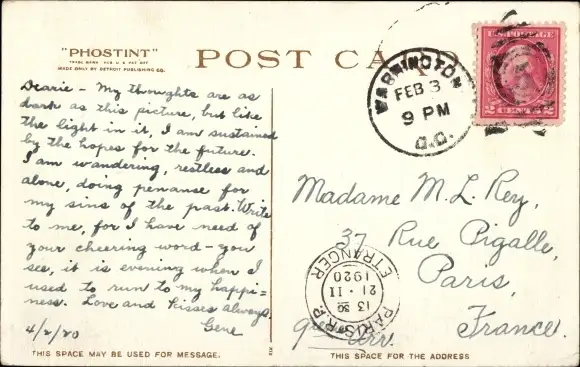 "PHOSTINT"
TRADE MARK REG. U.S. PAT. OFF.
MADE ONLY BY DETROIT PUBLISHING CO.
POST CARD
WASHINGTON
FEB 3
9 PM
D.C.
U.S. POSTAGE
2 CENTS 2
Dearie – My thoughts are as
dark as this picture, but like
the light in it, I am sustained
by the hopes for the future.
I am wandering, restless and
alone, doing penanse for
my sins of the past. Write
to me, for I have need of
your cheering word – you
see, it is evening when I
used to run to my happi=
ness. Love and Kisses always,
Gene
4/2/20
Madame M. L. Rey,
37 Rue Pigalle,
Paris,
France.
9me Arr.
PARIS R.P.
13 30
21 · II
1920
ETRANGER
THIS SPACE MAY BE USED FOR MESSAGE.
THIS SPACE FOR THE ADDRESS